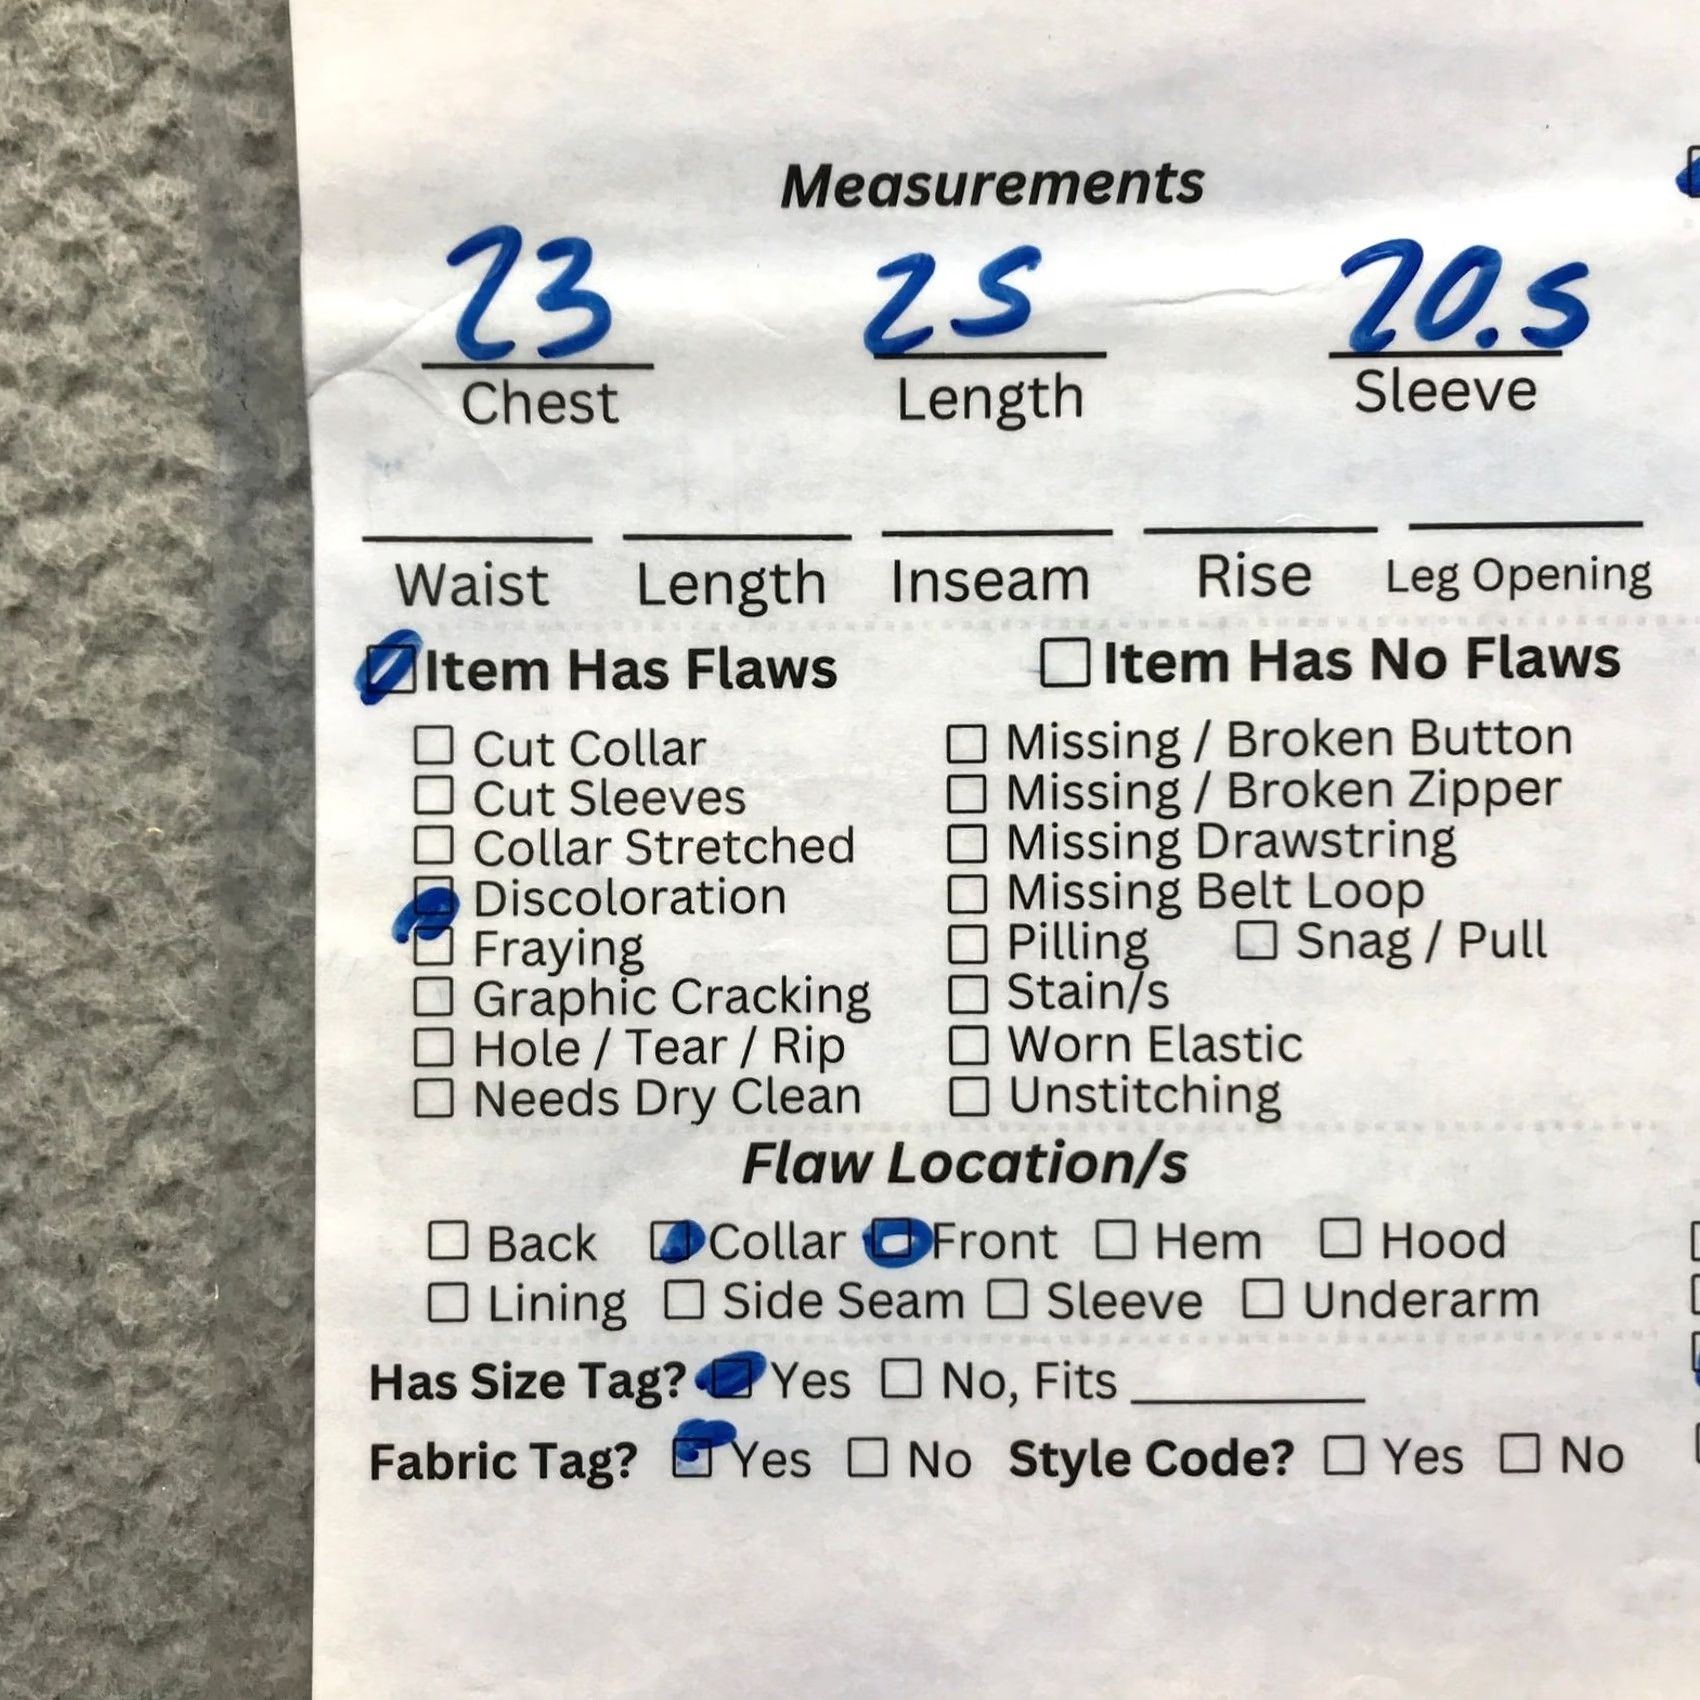 Measurements
23 25 20.5
Chest Length Sleeve
Waist Length Inseam Rise Leg Opening
Item Has Flaws Item Has No Flaws
Cut Collar Missing / Broken Button
Cut Sleeves Missing / Broken Zipper
Collar Stretched Missing Drawstring
Discoloration Missing Belt Loop
Fraying Pilling Snag / Pull
Graphic Cracking Stain/s
Hole / Tear / Rip Worn Elastic
Needs Dry Clean Unstitching
Flaw Location/s
Back Collar Front Hem Hood
Lining Side Seam Sleeve Underarm
Has Size Tag? Yes No, Fits
Fabric Tag? Yes No Style Code? Yes No